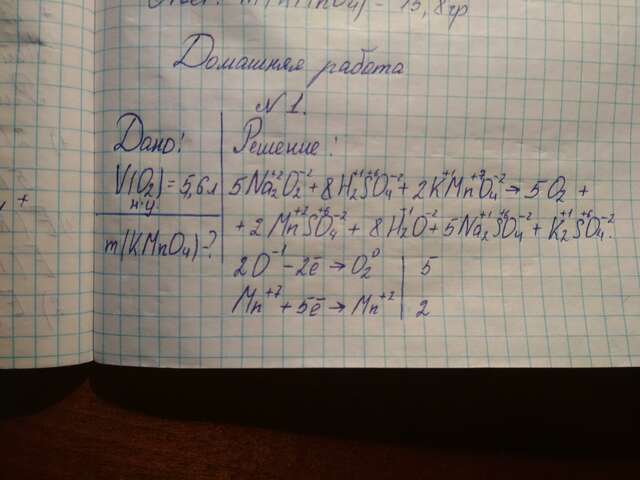 Ответ: m(KMnO4) = 15,8гр
Домашняя работа
№1.
Дано:
V(O2) = 5,6л
н.у
m(KMnO4)-?
Решение:
5Na2⁺²O2⁻² + 8H2⁺¹S⁺⁶O4⁻² + 2K⁺¹Mn⁺⁷O4⁻² → 5O2 +
+ 2Mn⁺²S⁺⁶O4⁻² + 8H2⁺¹O⁻² + 5Na2⁺¹S⁺⁶O4⁻² + K2⁺¹S⁺⁶O4⁻².
2O⁻¹ - 2ē → O2⁰ | 5
Mn⁺⁷ + 5ē → Mn⁺² | 2